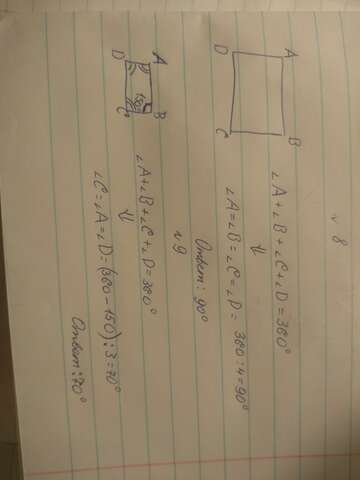 № 8
A
B
C
D
∠A+∠B+∠C+∠D=360°
⇓
∠A=∠B=∠C=∠D= 360:4=90°
Ответ: 90°
№ 9
A
B
C
D
150
∠A+∠B+∠C+∠D=360°
⇓
∠C=∠A=∠D=(360-150):3=70°
Ответ: 70°